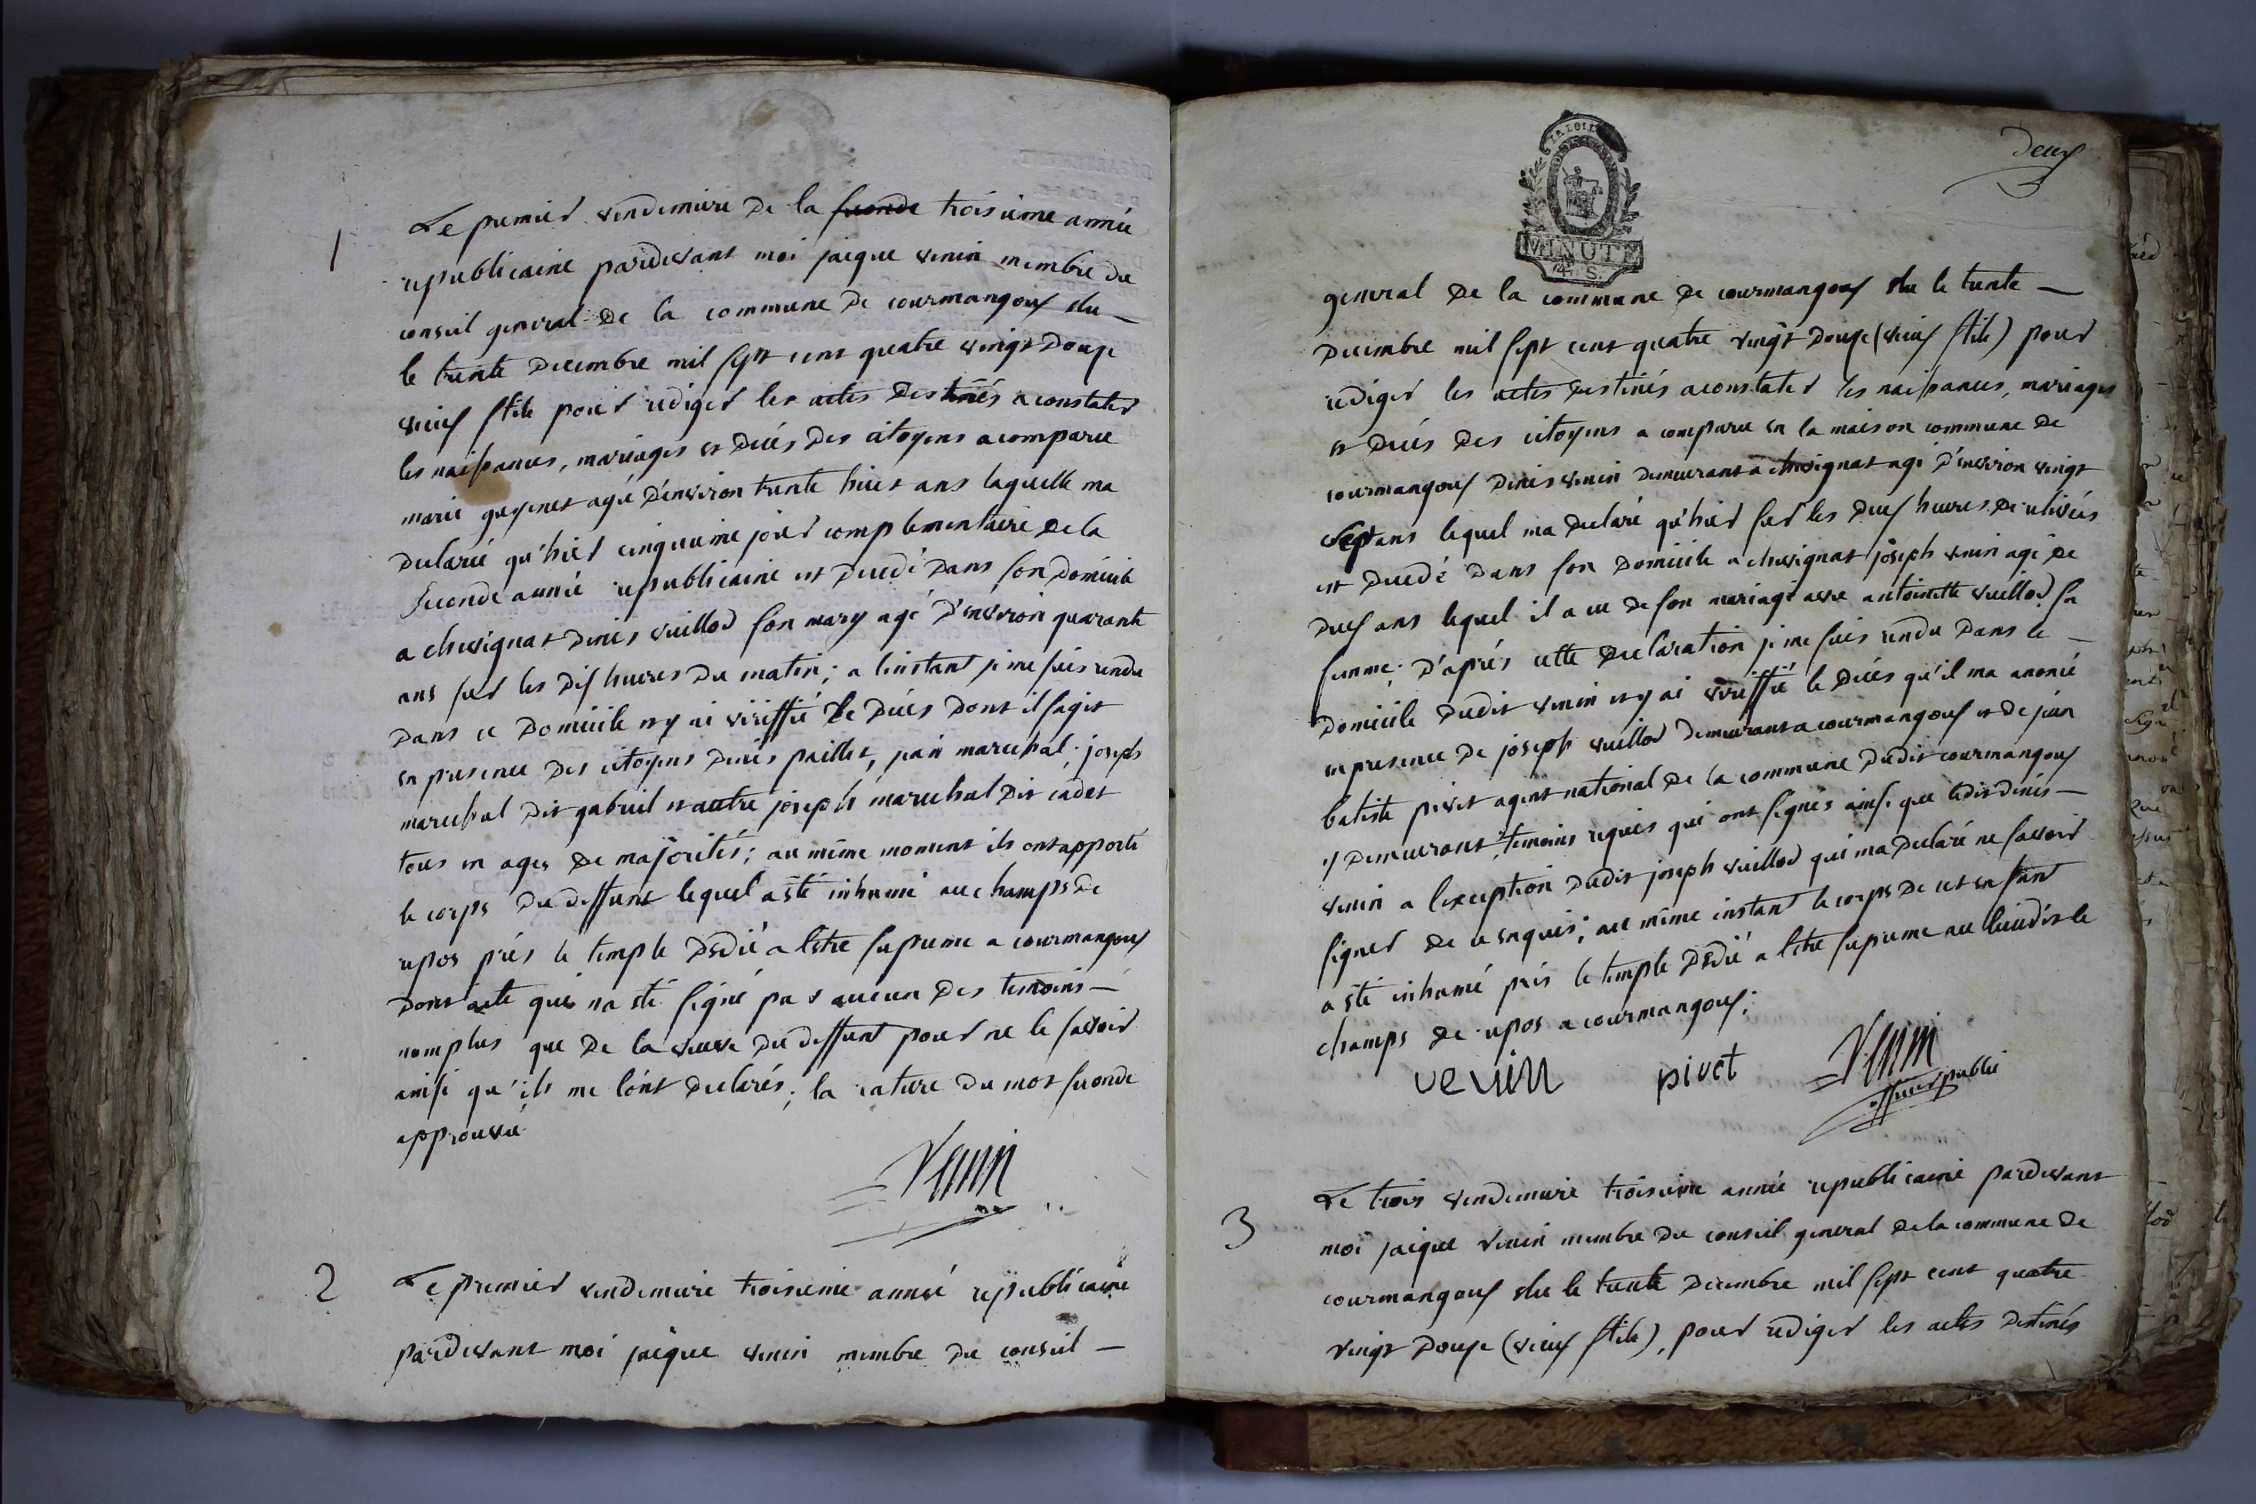 1
Le premier vendemiere de la seconde troisieme année
republicaine pardevant moi jacque venin membre du
conseil general de la commune de courmangoux elu
le trente decembre mil sept cent quatre vingt douze
vieux stile pour rediger les actes destinés a constater
les naissances, mariages et decés des citoyens a comparu
marie guyenet agée d'environ trente huit ans laquelle ma
declaré qu'hier cinquieme jour complementaire de la
seconde année republicaine est decedé dans son domicile
a chevignat denis vuillod son mary agé d'environ quarante
ans sur les dix heures du matin; a l'instant je me suis rendu
dans ce domicile et y ai veriffié le decés dont il sagit
en presence des citoyens denis paillet, jean marechal, joseph
marechal dit gabriel et autre joseph marechal dit cadet
tous en ages de majorités; au même moment ils ont apporté
le corps du deffunt lequel a été inhumé au champs de
repos prés le temple dédié a letre supreme a courmangoux
dont acte qui na été signé par aucun des temoins
nomplus que de la veuve du deffunt pour ne le savoir
ainsi qu'ils me lont declarés; la rature du mot seconde
approuvé
Venin
2
Le premier vendemiere troisieme année republicaine
pardevant moi jacque venin membre du conseil
LA LOI
MINUTE
4 S.
Deux
general de la commune de courmangoux elu le trente
decembre mil sept cent quatre vingt douze (vieux stile) pour
rediger les actes destinés a constater les naissances, mariages
et decés des citoyens a comparu en la maison commune de
courmangoux denis venin demeurant a chevignat agé d'environ vingt
sept ans lequel ma declaré qu'hier sur les deux heures de relevées
est decedé dans son domicile a chevignat joseph venin agé de
deux ans lequel il a eu de son mariage avec antoinette vuillod sa
femme; d'aprés cette declaration je me suis rendu dans le
domicile dudit venin et y ai veriffié le decés qu'il ma anoncé
en presence de joseph vuillod demeurant a courmangoux et de jean
batiste pivet agent national de la commune dudit courmangoux
y demeurant, temoins requis qui ont signés ainsi que ledit denis
venin a lexception dudit joseph vuillod qui ma declaré ne savoir
signer de ce enquis; au même instant le corps de cet enfant
a été inhumé prés le temple dédié a letre supreme au lieudit le
champs de repos a courmangoux;
venin pivet Venin
officier public
3
Le trois vendemiere troisieme année republicaine pardevant
moi jacque venin membre du conseil general de la commune de
courmangoux elu le trente decembre mil sept cent quatre
vingt douze (vieux stile), pour rediger les actes destinés